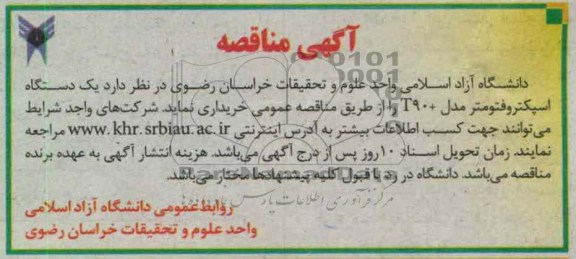 آگهی مناقصه
دانشگاه آزاد اسلامی واحد علوم و تحقیقات خراسان رضوی در نظر دارد یک دستگاه
اسپکتروفتومتر مدل +T۹۰ را از طریق مناقصه عمومی خریداری نماید. شرکت‌های واجد شرایط
می‌توانند جهت کسب اطلاعات بیشتر به آدرس اینترنتی www.khr.srbiau.ac.ir مراجعه
نمایند. زمان تحویل اسناد ۱۰روز پس از درج آگهی می‌باشد. هزینه انتشار آگهی به عهده برنده
مناقصه می‌باشد. دانشگاه در رد یا قبول کلیه پیشنهادها مختار می‌باشد.
روابط‌عمومی دانشگاه آزاد اسلامی
واحد علوم و تحقیقات خراسان رضوی